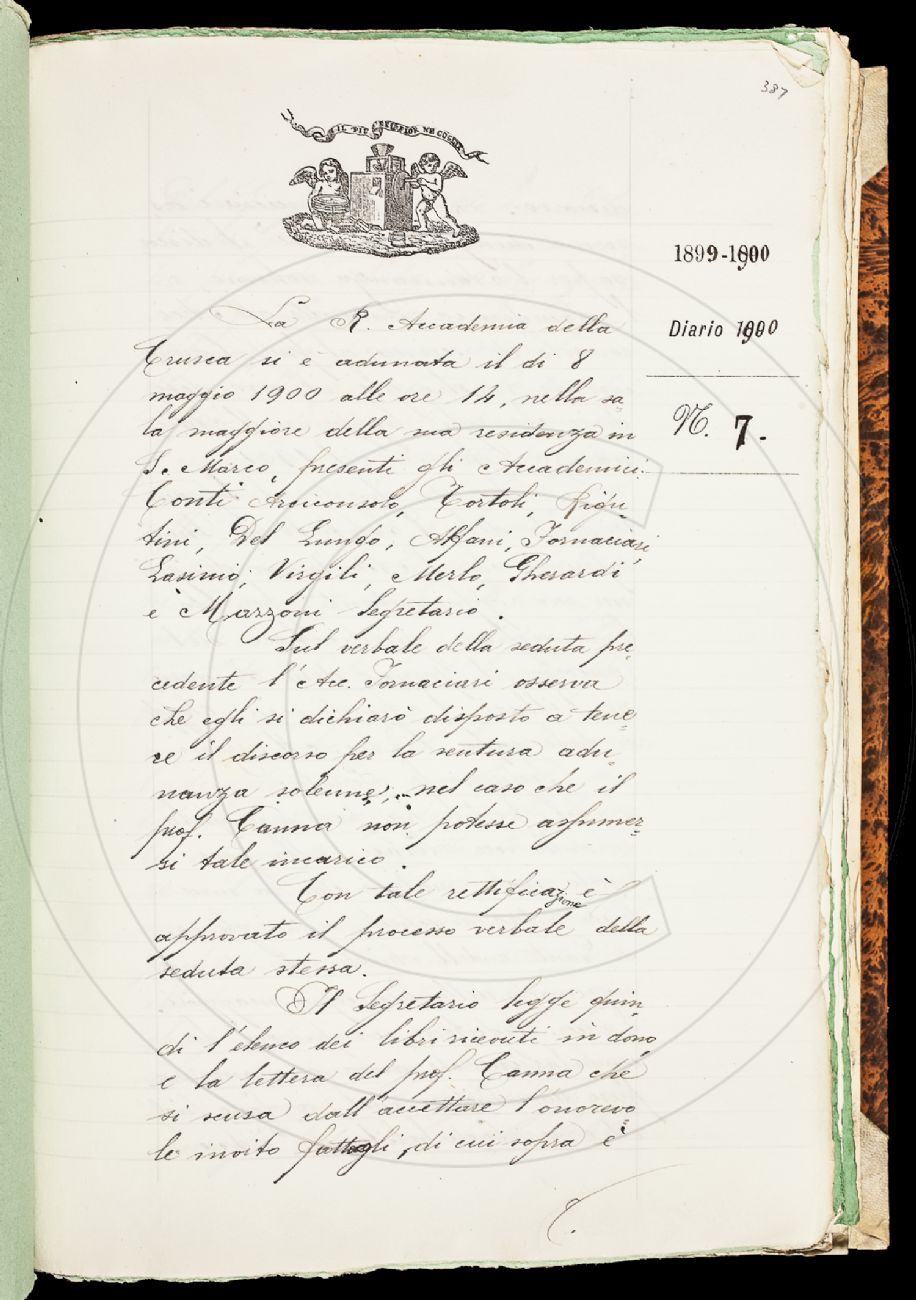 387
IL PIÙ BEL FIOR NE COGLIE
1899-1900
Diario 1900
N. 7.-
La R. Accademia della
Crusca si è adunata il dì 8
maggio 1900 alle ore 14, nella sa-
la maggiore della sua residenza in
S. Marco, presenti gli Accademici:
Conti Arciconsolo, Tortoli, Rigu-
tini, Del Lungo, Alfani, Fornaciari,
Lasinio, Virgili, Merlo, Gherardi
e Mazzoni Segretario.
Sul verbale della seduta pre-
cedente l'Acc. Fornaciari osserva
che egli si dichiarò disposto a tene-
re il discorso per la ventura adu-
nanza solenne, nel caso che il
prof. Canna non potesse assumer-
si tale incarico.
Con tale rettificazione è
approvato il processo verbale della
seduta stessa.
Il Segretario legge quin-
di l'elenco dei libri ricevuti in dono,
e la lettera del prof. Canna che
si scusa dall'accettare l'onorevo-
le invito fattogli, di cui sopra è